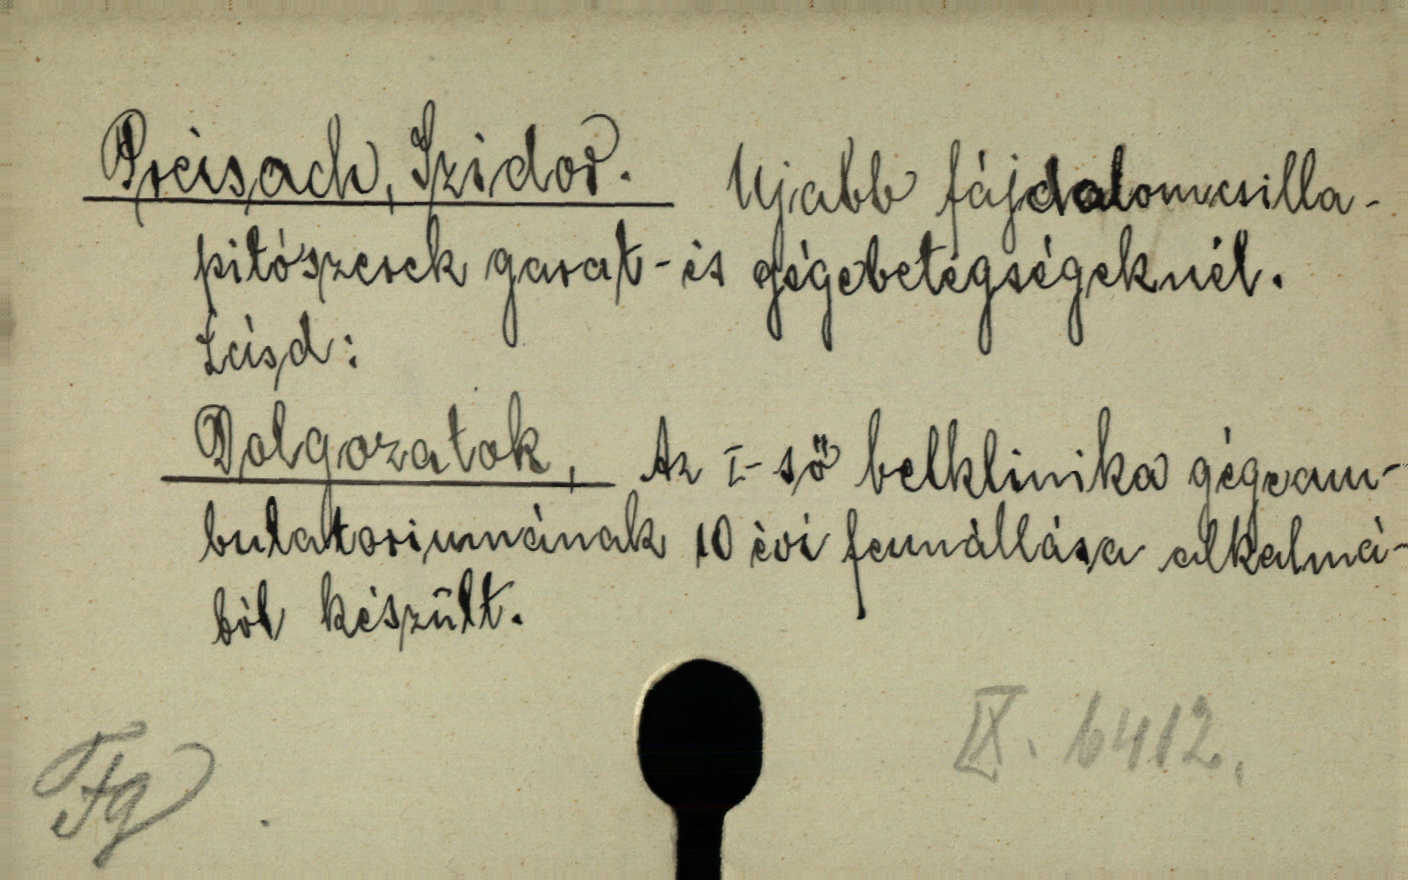 Preisach, Szidor. Ujabb fájdalomcsilla-
pitószerek garat- és gégebetegségeknél.
Lásd:
Dolgozatok, Az I-ső belklinika gégeam-
bulatoriumának 10 évi fennállása alkalmá-
ból készült.
IX. 6412.
Fg